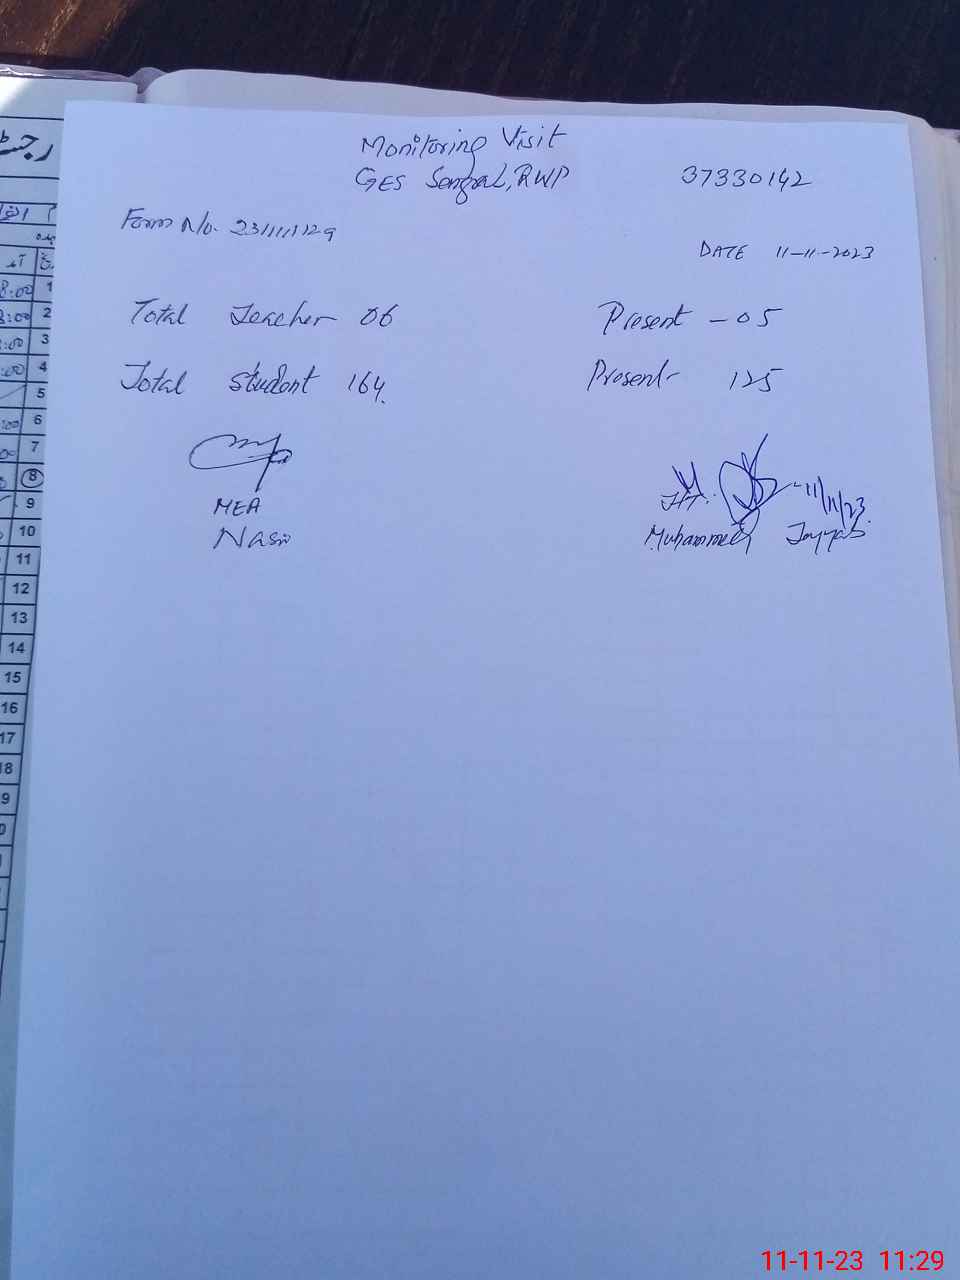 Monitoring Visit
GES Sengral, RWP 37330142
Form No.
DATE 11-11-2023
Total Teacher 06 Present - 05
Total Student 164. Present- 125
MEA
Nasir
11/11/23.
Muhammed Tayyab
رجسٹ
8:00 1
8:00 2
:00 3
:00 4
5
:00 6
00 7
8
9
10
11
12
13
14
15
16
17
18
9
11-11-23 11:29